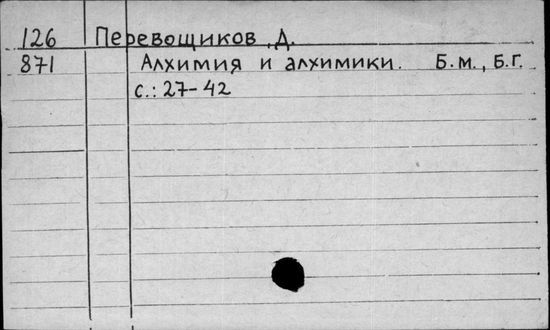 126 Перевощиков, Д.
871 Алхимия и алхимики. Б.м., Б.Г.
с.: 27-42